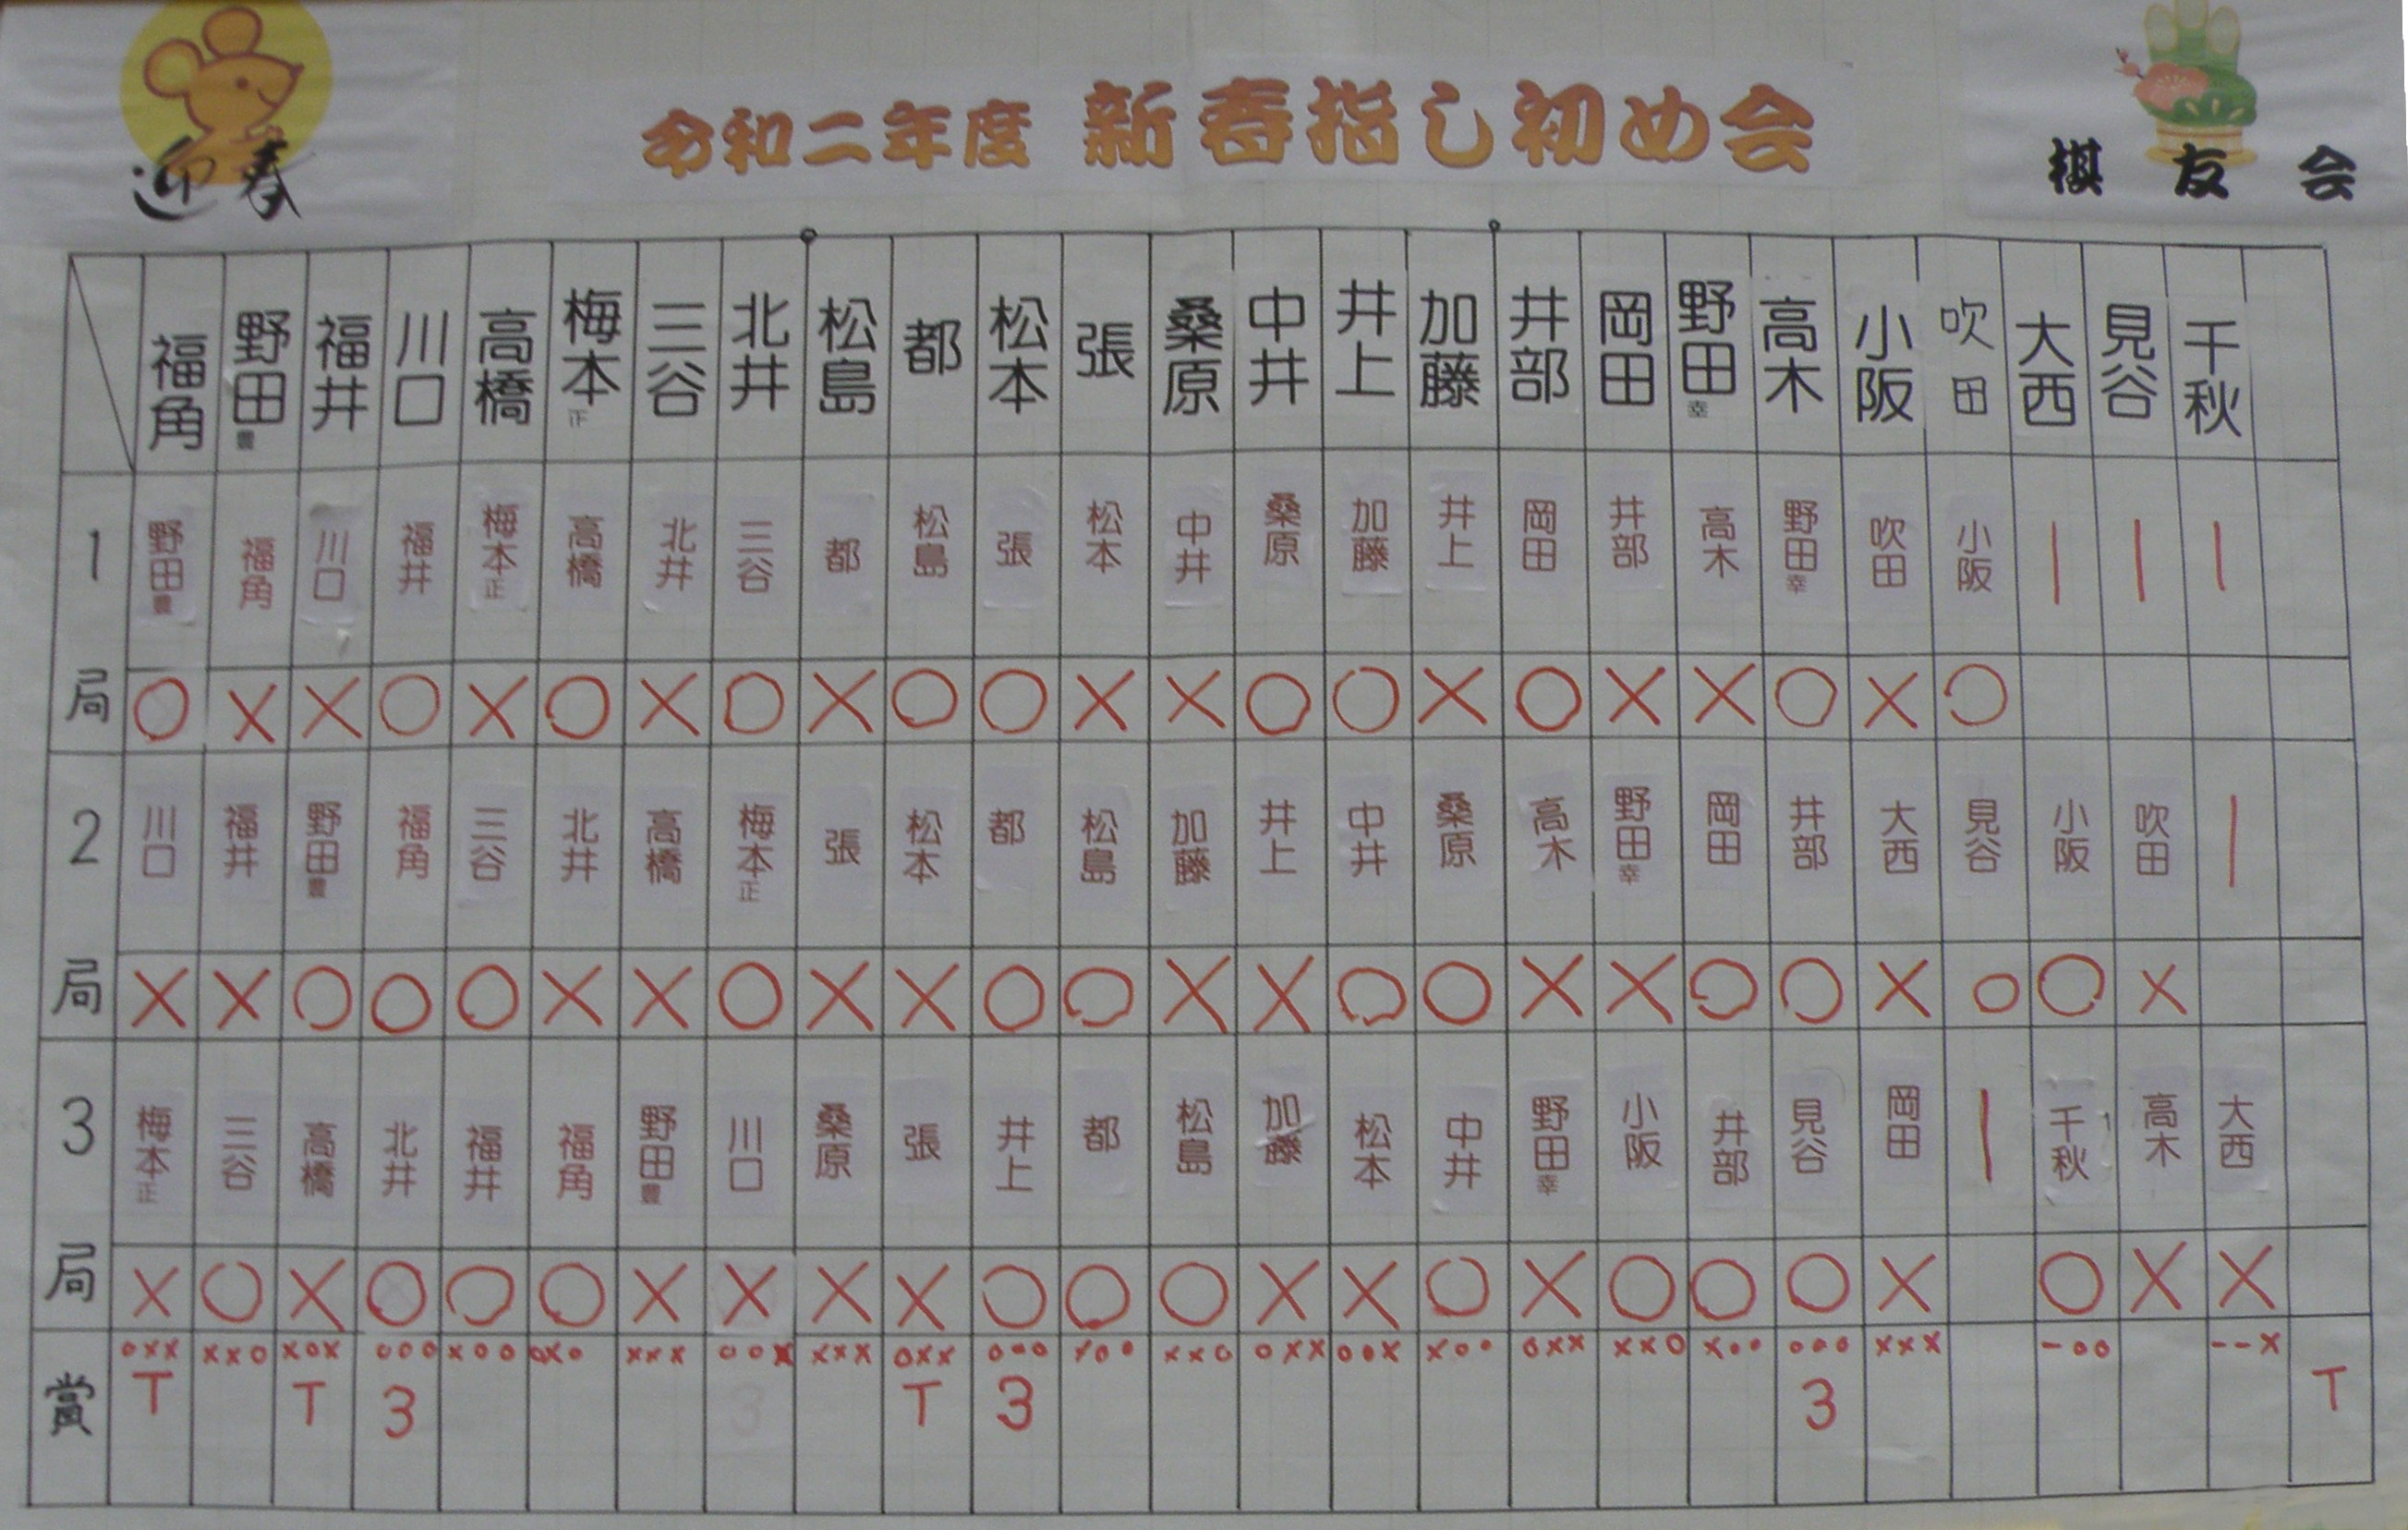 迎春
令和二年度 新春指し初め会
棋友会
福角 野田豊 福井 川口 高橋 梅本正 三谷 北井 松島 都 松本 張 桑原 中井 井上 加藤 井部 岡田 野田幸 高木 小阪 吹田 大西 見谷 千秋
1局 野田豊 福角 川口 福井 梅本正 高橋 北井 三谷 都 松島 張 松本 中井 桑原 加藤 井上 岡田 井部 高木 野田幸 吹田 小阪 | | |
○ × × ○ × ○ × ○ × ○ ○ × × ○ ○ × ○ × × ○ × ○
2局 川口 福井 野田豊 福角 三谷 北井 高橋 梅本正 張 松本 都 松島 加藤 井上 中井 桑原 高木 野田幸 岡田 井部 大西 見谷 小阪 吹田 |
× × ○ ○ ○ × × ○ × × ○ ○ × × ○ ○ × × ○ ○ × ○ ○ ×
3局 梅本正 三谷 高橋 北井 福井 福角 野田豊 川口 桑原 張 井上 都 松島 加藤 松本 中井 野田幸 小阪 井部 見谷 岡田 | 千秋 高木 大西
× ○ × ○ ○ ○ × × × × ○ ○ ○ × × ○ × ○ ○ ○ × ○ × ×
賞 ○×× ××○ ×○× ○○○ ×○○ ○×○ ××× ○○× ××× ○×× ○○○ ×○○ ××○ ○×× ○○× ×○○ ○×× ××○ ×○○ ○○○ ××× -○○ --×
T T 3 T 3 3 T